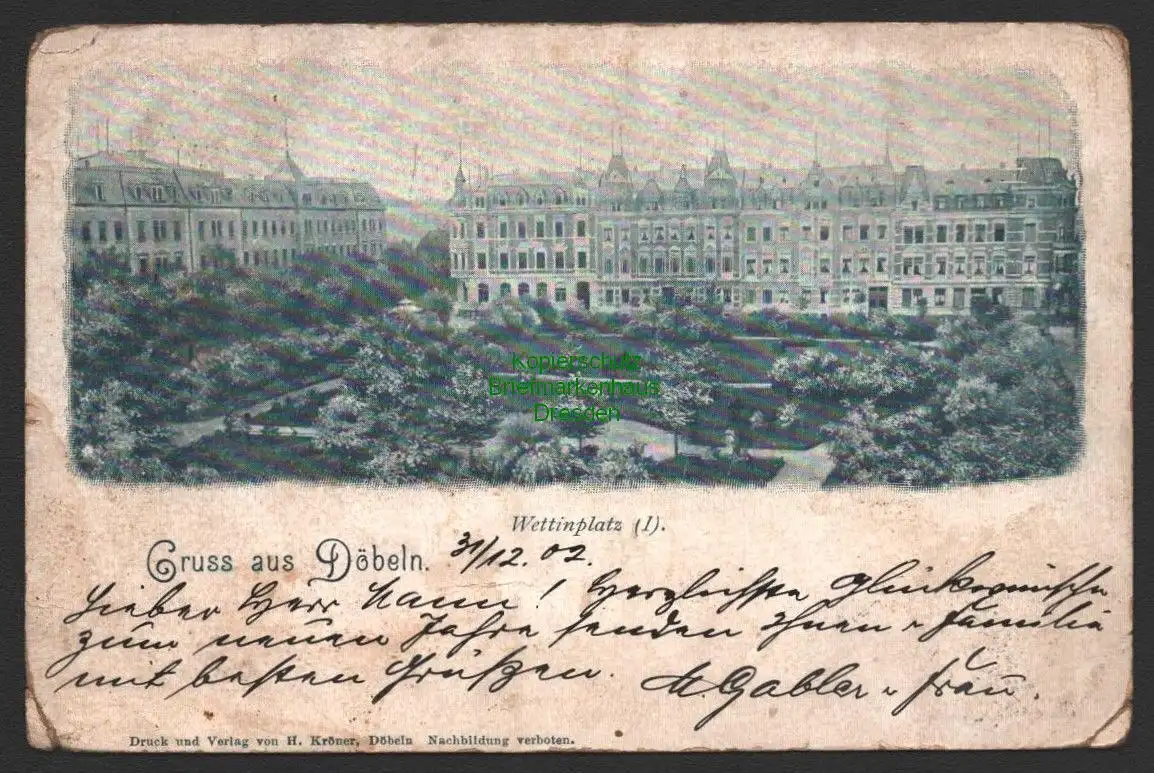 Kopierschutz
Briefmarkenhaus
Dresden
Wettinplatz (I).
Gruss aus Döbeln. 31/12. 02.
Lieber Herr Mann! Herzlichste Glückwünsche
zum neuen Jahre senden Ihnen u Familie
mit besten Grüßen. M Gabler u Frau.
Druck und Verlag von H. Kröner, Döbeln Nachbildung verboten.